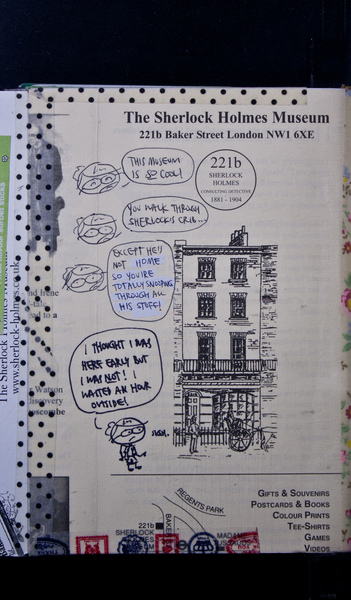 The Sherlock Holmes Museum
221b Baker Street London NW1 6XE
THIS MUSEUM
IS SO COOL!
221b
SHERLOCK
HOLMES
CONSULTING DETECTIVE
1881 - 1904
YOU WALK THROUGH
SHERLOCK'S CRIB...
EXCEPT HE'S
NOT HOME
SO YOU'RE
TOTALLY SNOOPING
THROUGH ALL
HIS STUFF!
I THOUGHT I WAS
HERE EARLY BUT
I WAS NOT! I
WAITED AN HOUR
OUTSIDE!
nd Irene
ad to a
Watson
iscovery
oscombe
The Sherlock Holmes
www.sherlock-holmes.co.uk
REGENTS PARK
221b
SHERLOCK
BAKE
MADAME
GIFTS & SOUVENIRS
POSTCARDS & BOOKS
COLOUR PRINTS
TEE-SHIRTS
GAMES
VIDEOS